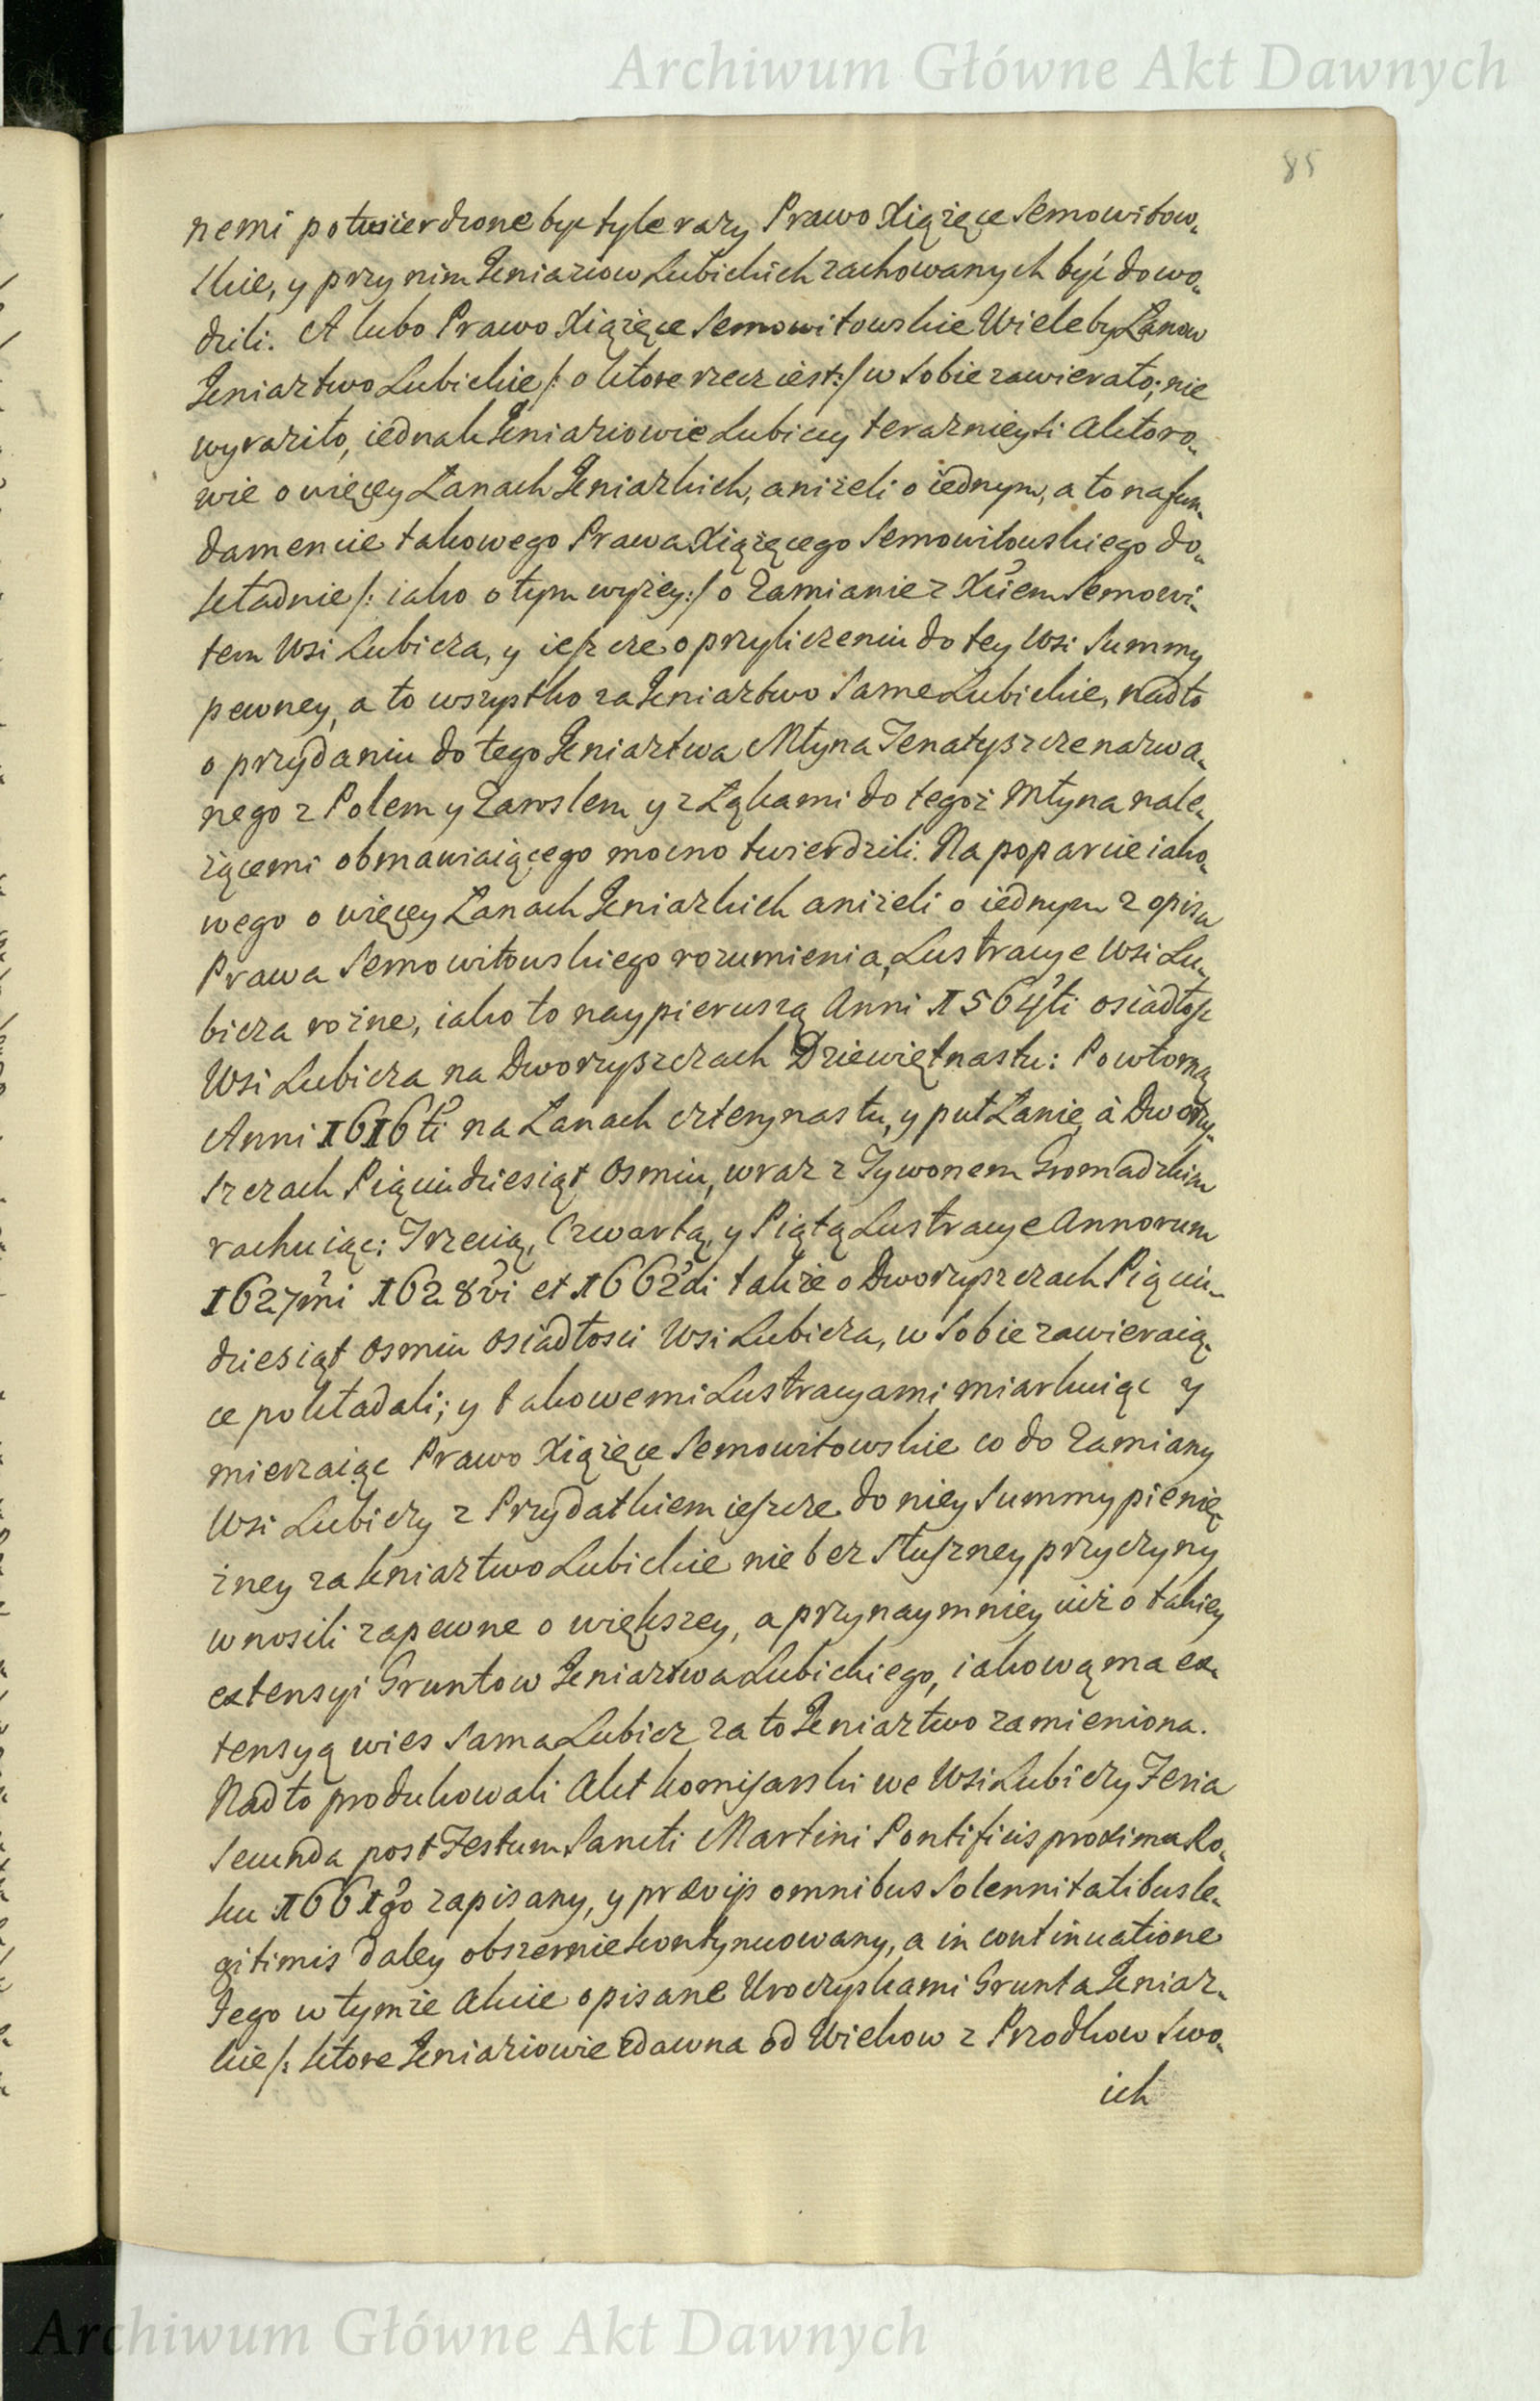 Archiwum Główne Akt Dawnych
85
nemi potwierdzone być tyle razy Prawo Xiążęce Semowitow„
skie, y przy nim Kniaziow Lubickich zachowanych być dowo„
dzili. A lubo Prawo Xiążęce Semowitowskie Wieleby Łanow
Kniaztwo Lubickie /: o ktore rzecz iest :/ w sobie zawierało; nie
wyraziło, iednak Kniaziowie Lubiccy teraznieysi Aktoro„
wie o więcey Łanach Kniazkich, aniżeli o iednym, a to na fun„
damencie takowego Prawa Xiążęcego Semowitowskiego do„
kładnie /: iako o tym wyżey :/ o Zamianie z Xciem Semowi„
tem Wsi Lubicza, y ieszcze o przyliczeniu do tey Wsi Summy
pewney, a to wszystko za Kniaztwo Same Lubickie, nadto
o przydaniu do tego Kniaztwa Młyna Jenatyszcze nazwa„
nego z Polem y Zaroslem y z Łąkami do tegoż Młyna nale„
żącemi obmawiaiącego mocno twierdzili. Na poparcie iako„
wego o więcey Łanach Kniazkich aniżeli o iednym z opisu
Prawa Semowitowskiego rozumienia, Lustracye Wsi Lu„
bicza rożne, iako to naypierwszą Anni 1564ti osiadłość
Wsi Lubicza na Dworzyszczach Dziewiętnastu: Powtorną
Anni 1616ti na Łanach czternastu, y puł Łanie, à Dworzy„
szczach Pięciudziesiąt Osmiu, wraz z Tywonem Gromadzkim
rachuiąc: Trzecią, Czwartą, y Piątą Lustracye Annorum
1627mi 1628vi et 1662di także o Dworzyszczach Pięciu„
dziesiąt Osmiu Osiadłosci Wsi Lubicza, w sobie zawieraią„
ce pokładali; y takowemi Lustracyami miarkuiąc y
mierzaiąc Prawo Xiążęce Semowitowskie co do Zamiany
Wsi Lubiczy z Przydatkiem ieszcze do niey Summy pienię„
żney za kniaztwo Lubickie nie bez słuszney przyczyny
wnosili zapewne o większey, a przynaymniey iuż o takiey
extensyi Gruntow Kniaztwa Lubickiego, iakową ma ex„
tensyą wies Sama Lubicz za to Kniaztwo zamieniona.
Nadto produkowali Akt komisarski we Wsi Lubiczy Feria
Secunda post Festum Sancti Martini Pontificis proxima Ro„
ku 1661go zapisany, y prævijs omnibus Solennitatibus le„
gitimis daley obszernie kontynuowany, a in continuatione
Jego w tymże Akcie opisane Uroczyskami Grunta Kniaz„
kie /: ktore Kniaziowie zdawna od Wiekow z Przodkow Swo„
ich
Archiwum Główne Akt Dawnych